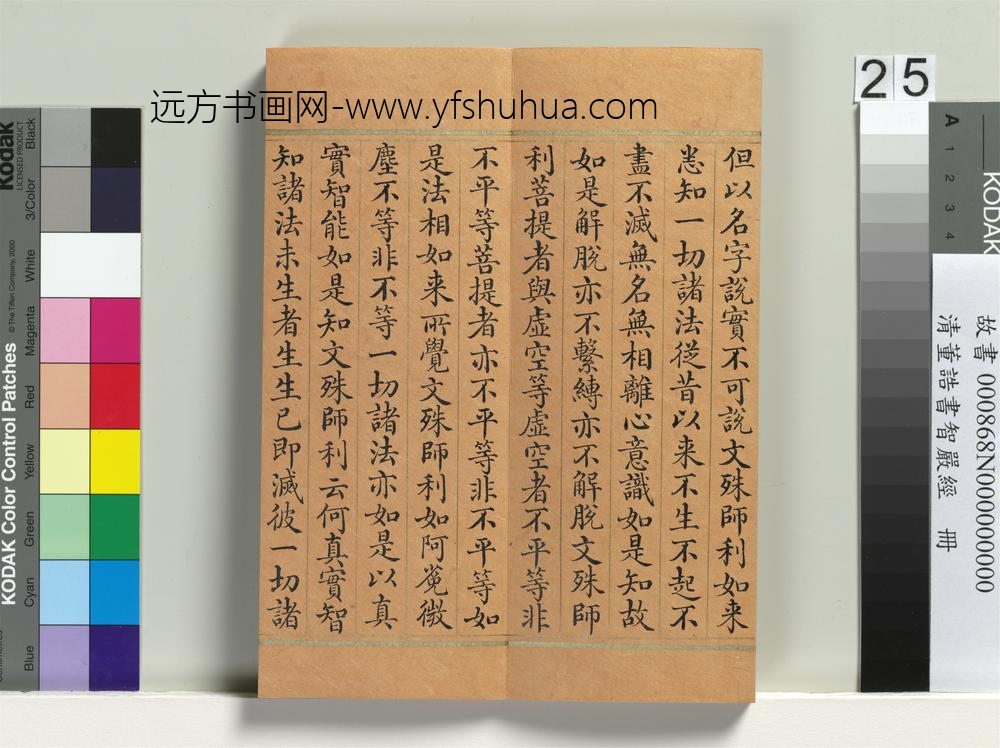 远方书画网-www.yfshuhua.com
但以名字說實不可說文殊師利如来
悉知一切諸法從昔以来不生不起不
盡不滅無名無相離心意識如是知故
如是解脫亦不繫縛亦不解脫文殊師
利菩提者與虛空等虛空者不平等非
不平等菩提者亦不平等非不平等如
是法相如来所覺文殊師利如阿㝹微
塵不等非不等一切諸法亦如是以真
實智能如是知文殊師利云何真實智
知諸法未生者生生已即滅彼一切諸
25
故書 000868N000000000
清董誥書智嚴經 冊
Kodak
LICENSED PRODUCT
KODAK Color Control Patches
© The Tiffen Company, 2000
Black
3/Color
White
Magenta
Red
Yellow
Green
Cyan
Blue
KODAK
A 1 2 3 4